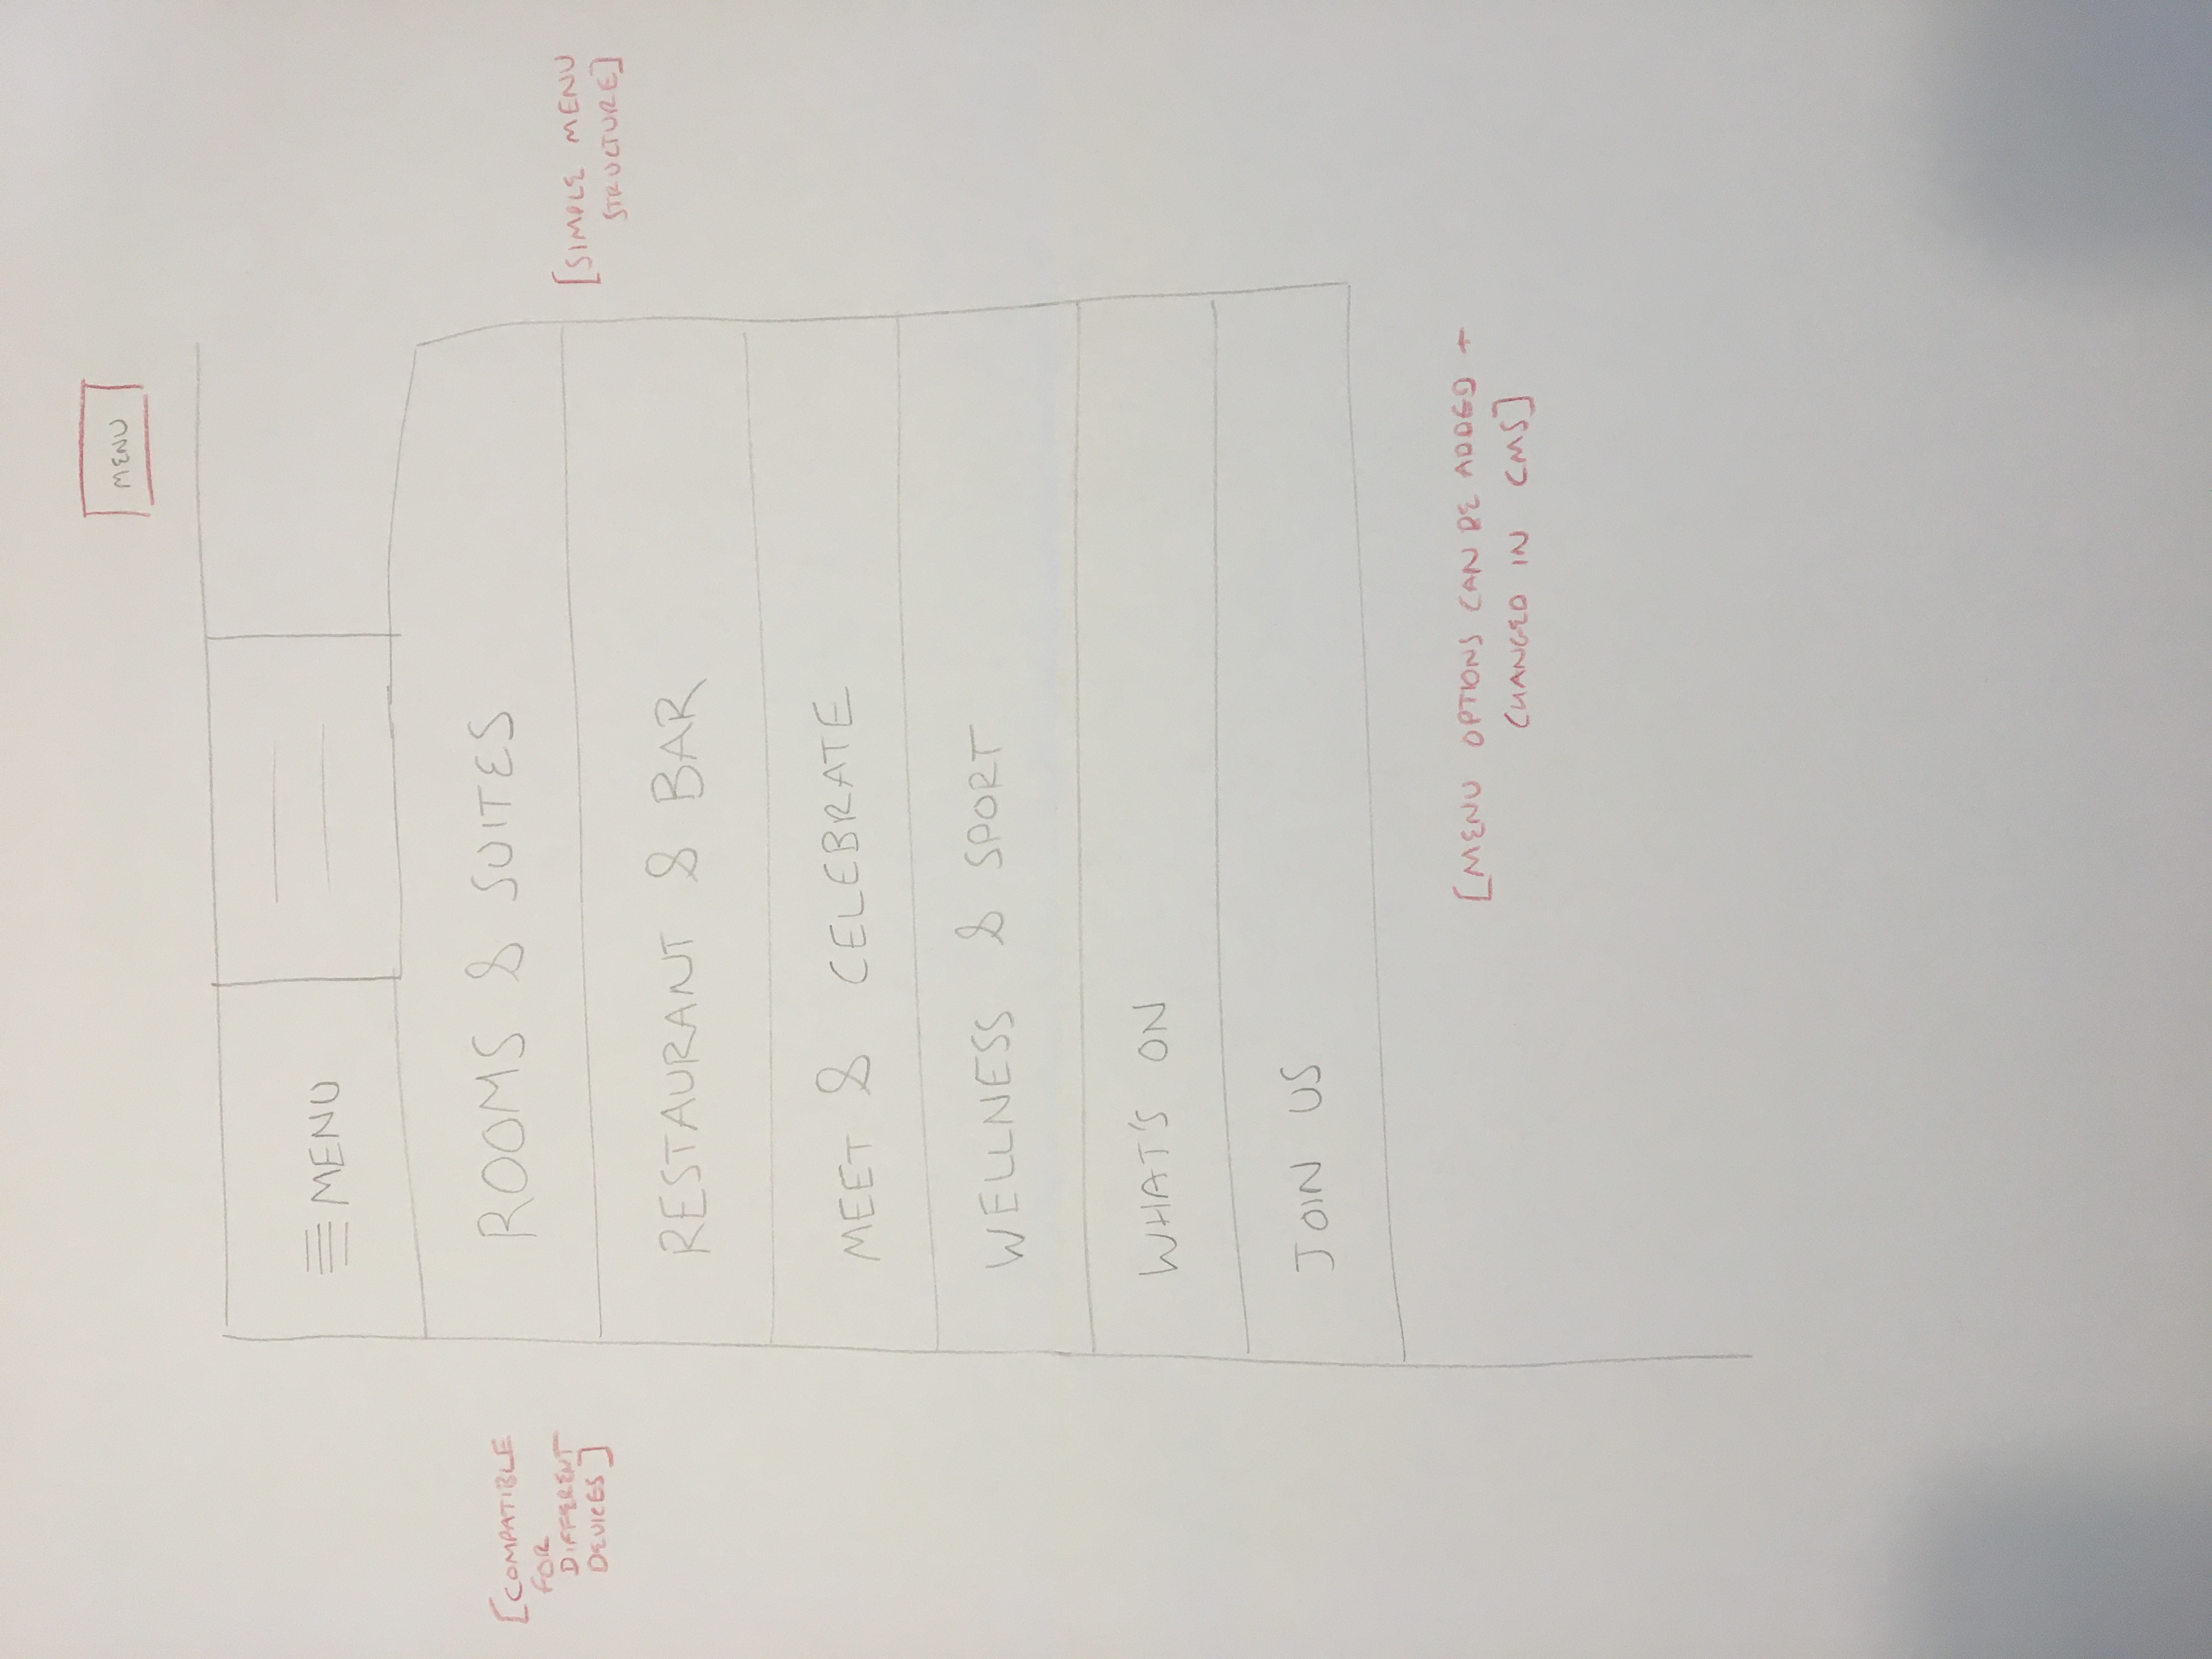 MENU
MENU
ROOMS & SUITES
[COMPATIBLE
FOR
DIFFERENT
DEVICES]
[SIMPLE MENU
STRUCTURE]
RESTAURANT & BAR
MEET & CELEBRATE
WELLNESS & SPORT
WHAT'S ON
JOIN US
[MENU OPTIONS CAN BE ADDED +
CHANGED IN CMS]